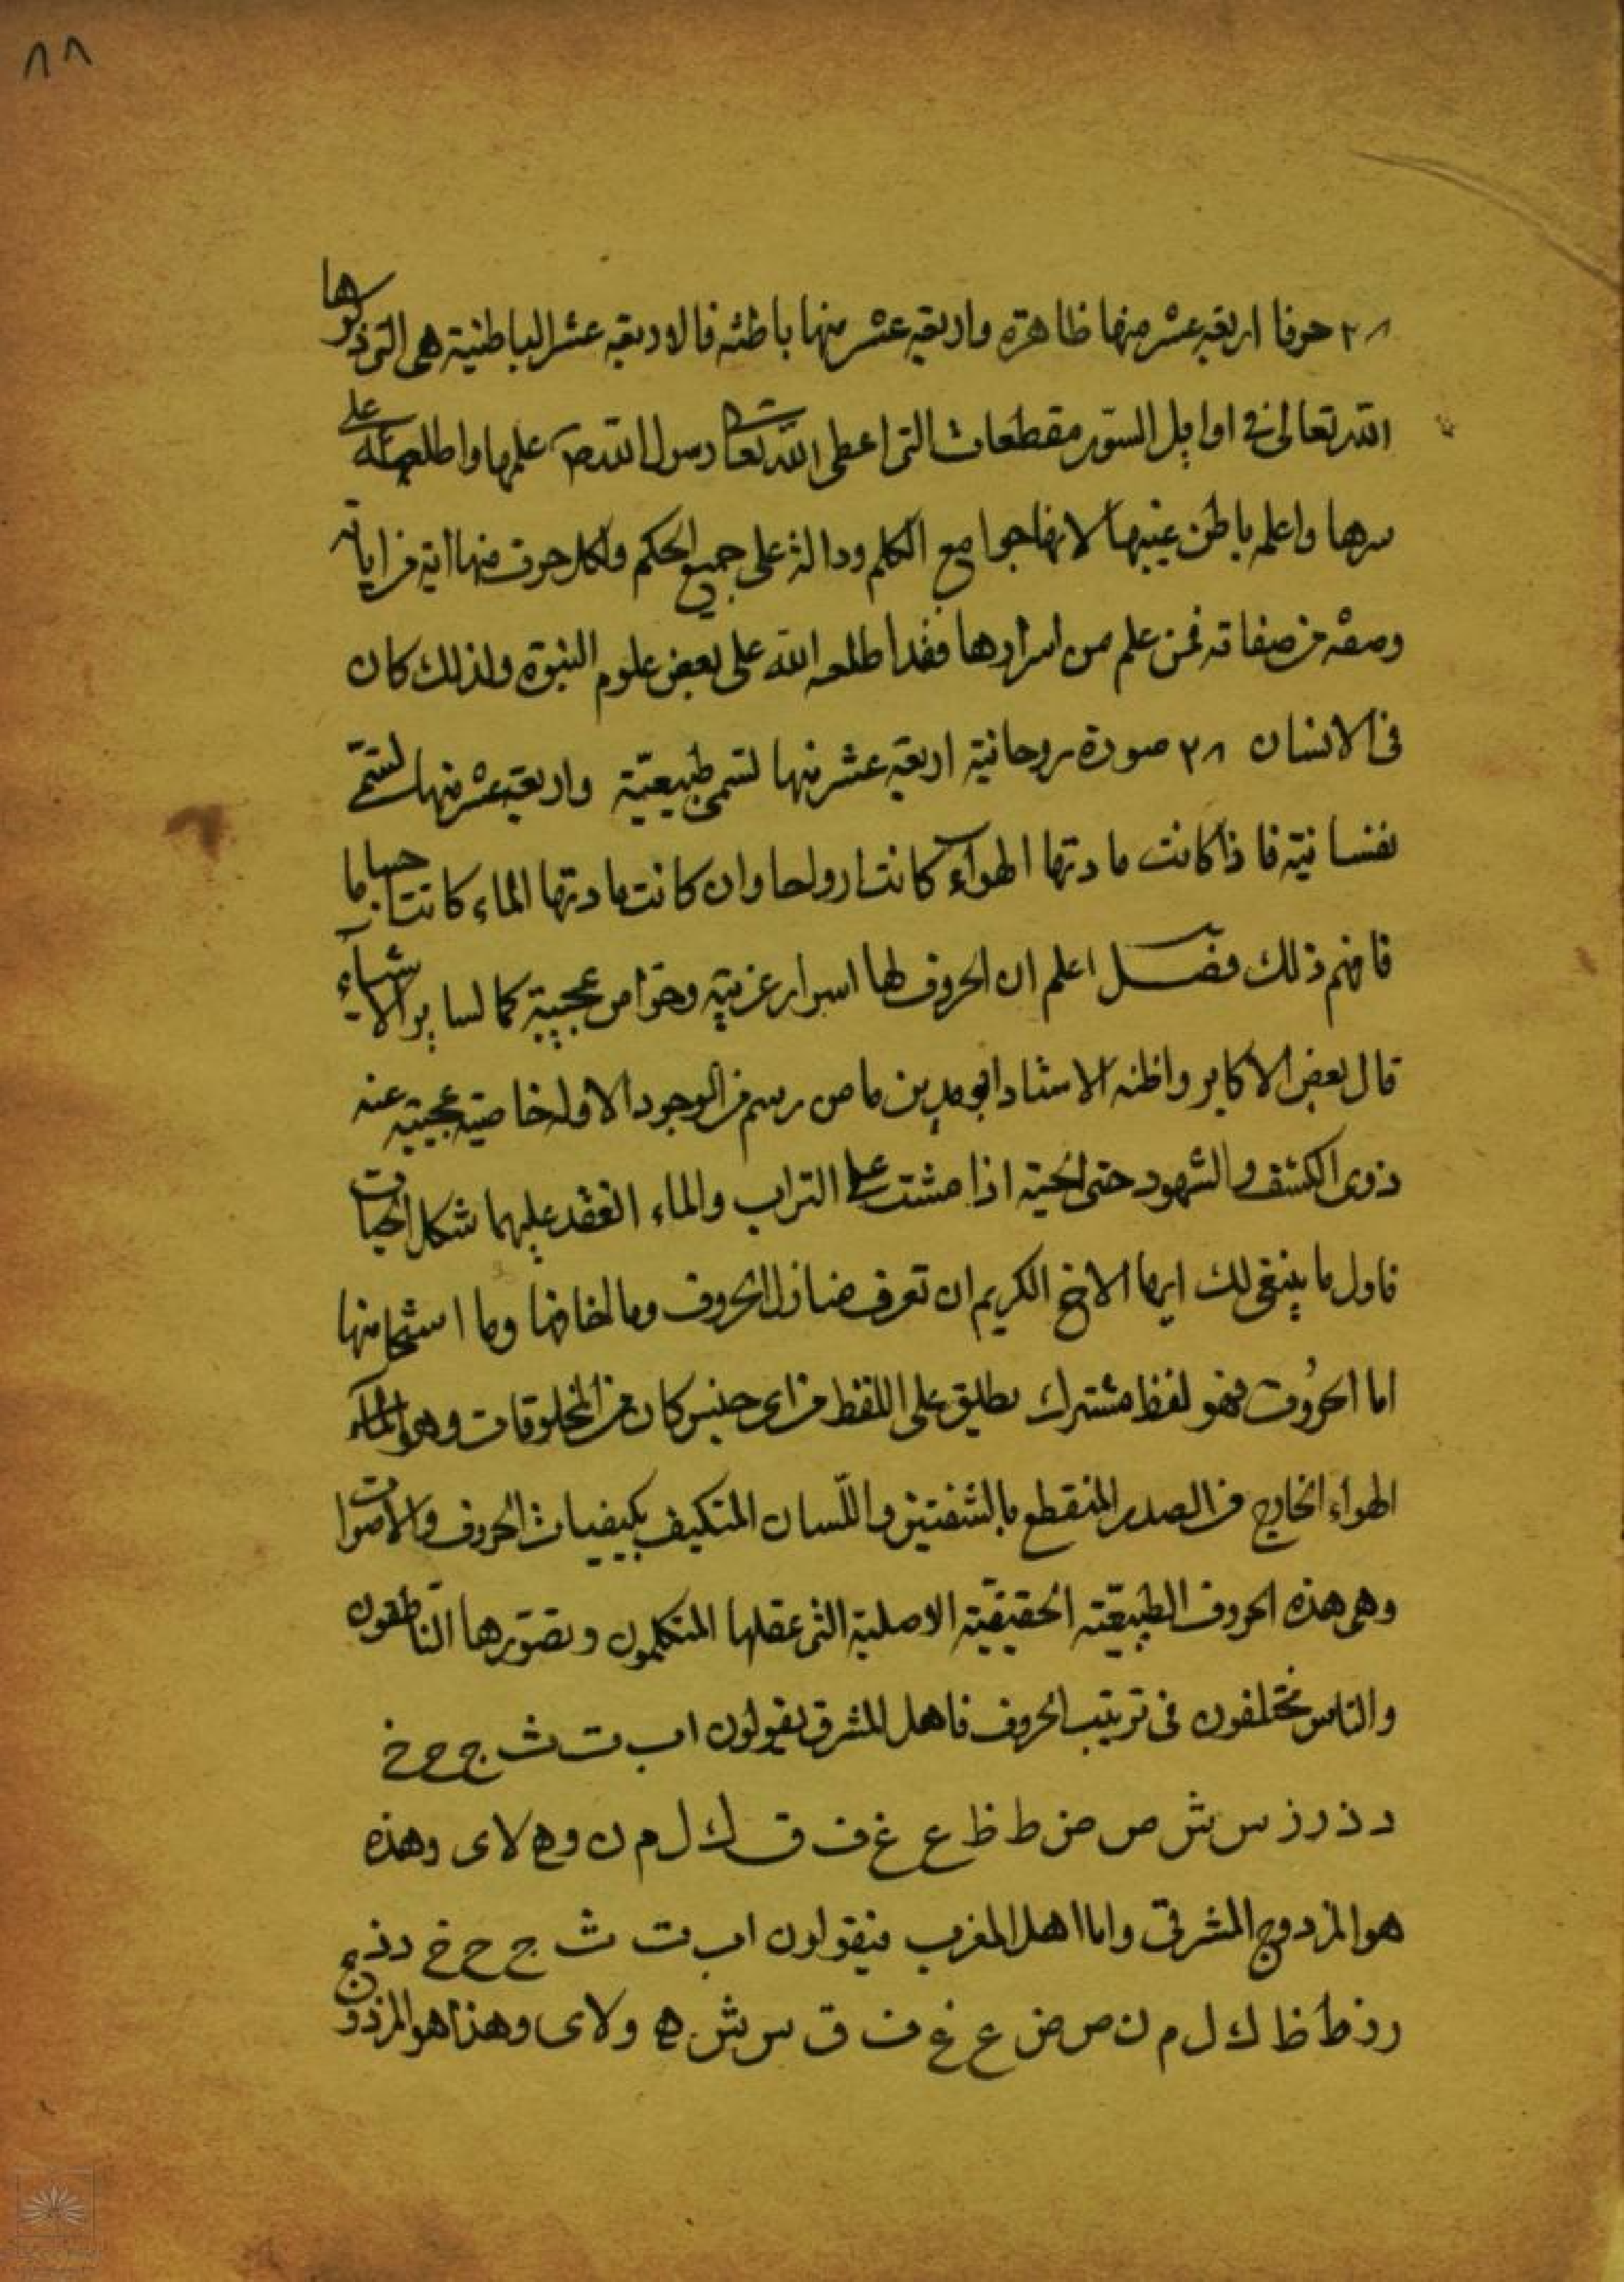 ٨٨
٢٨ حرفا اربعة عشر منها ظاهرة واربعة عشر منها باطنه فالاربعة عشر الباطنية هی التی ذكرها
الله تعالی فی اوایل السّور مقطعات التی اعطی الله تعا رسول الله ص علمها واطلعه علی
سرها واعلمه باطن غیبها لانها جوامع الكلم ودالة علی جمیع الحكم ولكل حرف منها ایة من ایاته
وصفه من صفاته فمن علم من اسرارها فقد اطلعه الله علی بعض علوم النبوة ولذلك كان
فی الانسان ٢٨ صورة روحانیة اربعة عشر منها تسمی طبیعیّة واربعة عشر منها تسمّی
نفسانیة فاذا كانت مادتها الهوآء كانت ارواحا وان كانت مادتها الماء كانت اجساما
فافهم ذلك فصل اعلم ان الحروف لها اسرار غریبة وخواص عجیبة كما لسایر الاشیاء
قال بعض الاكابر واظنه الاستاد ابو مدین ما من رسم فی الوجود الا وله خاصیة عجیبة عند
ذوی الكشف والشهود حتی الحیة اذا مشت علی التراب والماء انعقد علیهما شكل الحیات
فاول ما ینبغی لك ایها الاخ الكریم ان تعرف منازل الحروف وما لخافها وما اشكل منها
اما الحرُوف فهو لفظ مشترك یطلیق علی اللفظ من ای جنس كان من المخلوقات وهو
الهواء الخارج من الصدر المنقطع بالشفتین واللّسان المتكیف بكیفیات الحروف والاصوات
وهی هذه الحروف الطبیعیّة الحقیقیّة الاصلیة التی عقلها المتكلمون وتصوّرها النّاطقون
والناس مختلفون فی ترتیب الحروف فاهل المشرق یقولون ا ب ت ث ج ح خ
د ذ ر ز س ش ص ض ط ظ ع غ ف ق ك ل م ن و ه لا ی وهذه
هو المزدوج المشرقی واما اهل المغرب فیقولون ا ب ت ث ج ح خ د ذ
ر ز ط ظ ك ل م ن ص ض ع غ ف ق س ش ه و لا ی وهذا هو المزدوج